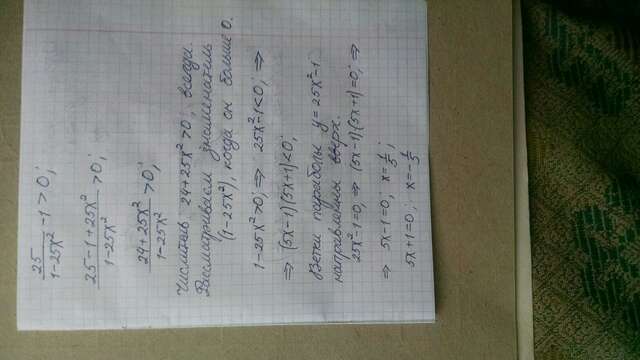 25/(1-25x²) - 1 > 0;
(25-1+25x²)/(1-25x²) > 0;
(24+25x²)/(1-25x²) > 0;
Числитель 24+25x²>0, всегда.
Рассматриваем знаменатель
(1-25x²), когда он больше 0.
1-25x²>0; ⇒ 25x²-1<0; ⇒
⇒ (5x-1)(5x+1)<0;
Ветки параболы y=25x²-1
направлены вверх.
25x²-1=0; ⇒ (5x-1)(5x+1)=0; ⇒
⇒ 5x-1=0; x=1/5;
5x+1=0; x=-1/5